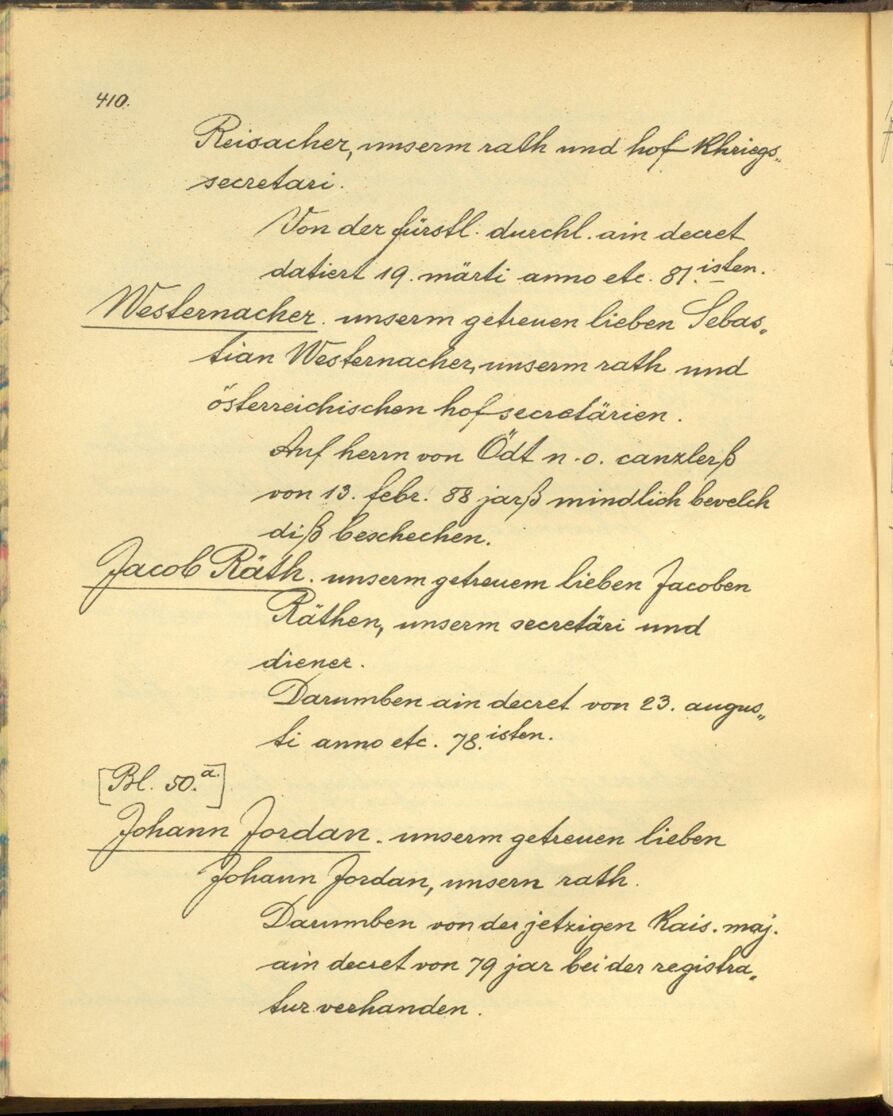 410.
Reisacher, unserm rath und hof Khriegs„
secretari.
Von der fürstl. durchl. ain decret
datiert 19. märti anno etc. 81.isten.
Westernacher. unserm getreuen lieben Sebas„
tian Westernacher, unserm rath und
österreichischen hofsecretärien.
Auf herrn von Ödt n.o. canzlerß
von 13. febr. 88 jarß mindlich bevelch
diß beschechen.
Jacob Räth. unserm getreuem lieben Jacoben
Räthen, unserm secretäri und
diener.
Darumben ain decret von 23. augus„
ti anno etc. 78.isten.
[Bl. 50.a.]
Johann Jordan. unserm getreuen lieben
Johann Jordan, unsern rath.
Darumben von der jetzigen Kais. maj.
ain decret von 79 jar bei der registra„
tur verhanden.